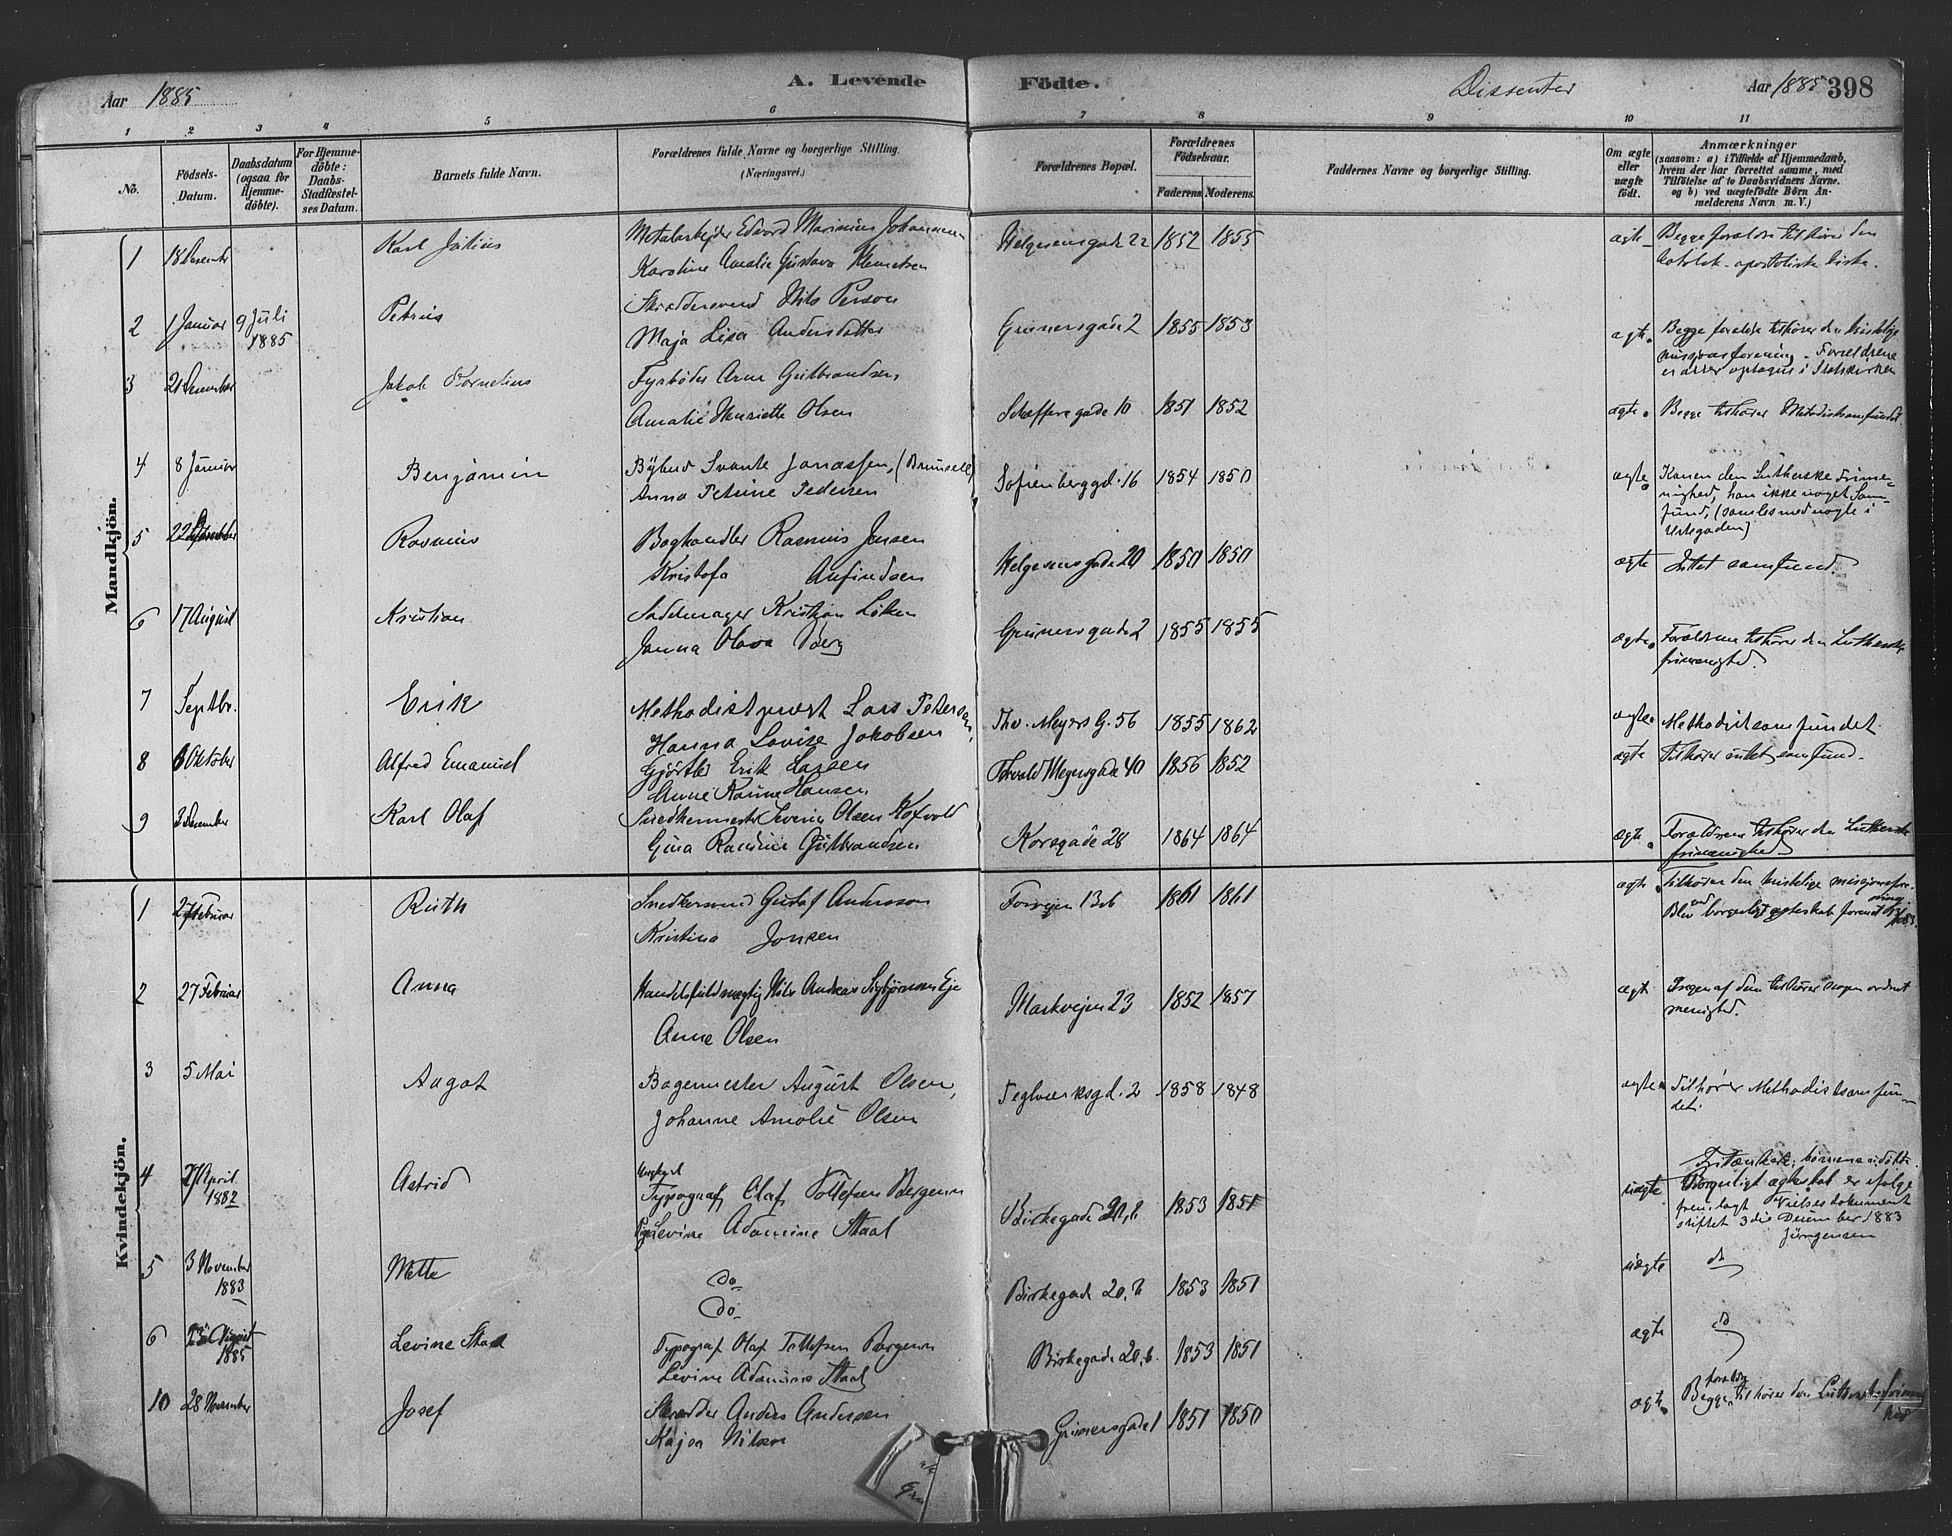 Aar 1885
A. Levende Födte.
Dissenter
Aar 1885 398
1 2 3 4 5 6 7 8 9 10 11
No.
Födsels-Datum.
Daabsdatum (ogsaa for Hjemme-döbte).
For Hjemme-döbte: Daabs-Stadfæstel-ses Datum.
Barnets fulde Navn.
Forældrenes fulde Navne og borgerlige Stilling.
(Næringsvei.)
Forældrenes Bopæl.
Forældrenes Födselsaar.
Faderens. Moderens.
Faddernes Navne og borgerlige Stilling.
Om ægte eller uægte födt.
Anmærkninger
(saasom: a) i Tilfælde af Hjemmedaab, hvem der har forrettet samme, med Tilföielse af to Daabsvidners Navne. og b) ved uægtefödte Börn Anmelderens Navn m. V.)
Mandkjön.
1 18 December Karl Julius Metalarbejder Edvard Marinius Johannesen Helgesensgade 22 1852 1855 ægte Begge forældre tilhører den
Karoline Amalie Gustava Klemetsen katolsk-apostoliske kirke.
2 1 Januar 9 Juli 1885 Petrus Skræddersvend Nils Person
Maja Lisa Andersdatter Grünersgade 2 1855 1853 ægte. Begge forældre tilhører den kristelige
missionsforening. Forældrene
er atter optagne i Statskirken
3 21 December Jakob Kornelius Fyrbøder Arne Gulbrandsen
Amalie Henriette Olsen Schæffers gade 10 1851 1852 ægte. Begge tilhører Metodistsamfundet
4 8 Januar Benjamin Bybud Svante Jonassen, (Brunsell)
Anna Petrine Pedersen Sofienberggd. 16 1854 1850 ægte. Konen den Lutherske Frime-
nighed, han ikke noget Sam-
fund, (samles med nogle i
Urtegaden)
5 22 Rasmus Boghandler Rasmus Jensen
Kristofa Anfindsen Helgesensgade 20 1850 1850 ægte Intet samfund.
6 17 August Kristian Sadelmager Kristian Løken
Janna Olava Berg Grünersgade 2 1855 1855 ægte. Forældrene tilhører den Lutherske
frimenighed.
7 Septbr. Erik Methodistpræst Lars Petersen,
Hanna Lovise Jakobsen Thv. Meyers G. 56 1855 1862 ægte. Methodistsamfundet.
8 6 Oktober Alfred Emanuel Gjørtler Erik Larsen Torvald Meyersgade 40 1856 1852 ægte Tilhører intet samfund.
Anne Karine Hansen
9 3 December Karl Olaf Snedkermester Severin Olsen Kolfvold
Gina Randine Gulbrandsen Korsgade 28 1864 1864 ægte. Forældrene tilhører den Lutherske
frimenighed
Kvindekjön.
1 27 Februar Ruth Snedkersvend Gustaf Andersson Fosvejen 13 b 1861 1861 ægte. tilhører den kristelige missionsfor-
ening
Kristina Jonsen Blev ved borgerligt ægteskab forenet
2 27 Februar Anna Handelsfuldmægtig Nils Andreas Sigbjørnsen Eje
Anne Olsen Markvejen 23 1852 1857 ægte Ingen af dem tilhører nogen ordnet
menighed.
3 5 Mai Aagot Bagermester August Olsen,
Johanne Amalie Olsen Teglverksgd. 2 1858 1848 ægte. Tilhører Methodistsamfun-
det.
4 27 April 1882 Astrid Ungkarl
Typograf Olaf Tollefsen Bergersen
Pige Levine Adamine Staal Birkegade 20, b 1853 1851 uægte Fritænkere; børnene udøbte.
Borgerligt ægteskab er ifølge
frem lagt Vielsesdokument
stiftet 3die December 1883
Jürgensen
5 3 November 1883 Mette do
do Birkegade 20. b 1853 1851 uægte do
6 23 August 1885 Levine Staal Typograf Olaf Tollefsen Bergersen
Levine Adamine Staal Birkegade 20. b. 1853 1851 ægte do
10 28 November Josef Skrædder Anders Andersen
Kajsa Nilsson Grünersgade 1 1851 1850 ægte. Begge forældre tilhører den Lutherske frimenig
hed